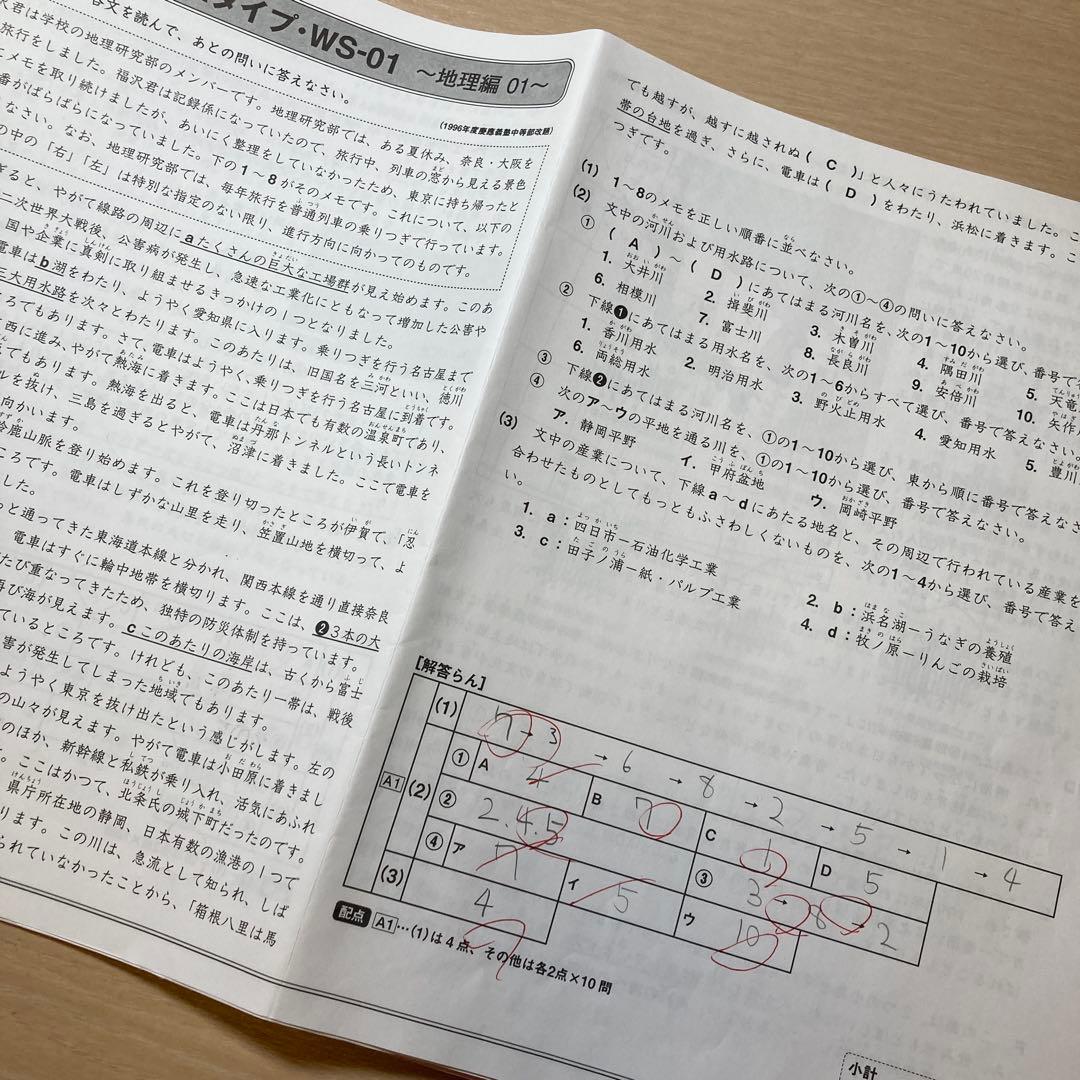 タイプ・WS-01 ～地理編 01～
各文を読んで、あとの問いに答えなさい。
(1996年度慶應義塾中等部改題)
沢君は学校の地理研究部のメンバーです。地理研究部では、ある夏休み、奈良・大阪を
旅行をしました。福沢君は記録係になっていたので、旅行中、列車の窓から見える景色
メモを取り続けましたが、あいにく整理をしていなかったため、東京に持ち帰ったと
番がばらばらになっていました。下の1～8がそのメモです。これについて、以下の
なさい。なお、地理研究部では、毎年旅行を普通列車の乗りつぎで行っています。
の中の「右」「左」は特別な指定のない限り、進行方向に向かってのものです。
ぎると、やがて線路の周辺にaたくさんの巨大な工場群が見え始めます。このあ
二次世界大戦後、公害病が発生し、急速な工業化にともなって増加した公害や
国や企業に真剣に取り組ませるきっかけの1つとなりました。
電車はb湖をわたり、ようやく愛知県に入ります。乗りつぎを行う名古屋まで
三大用水路を次々とわたります。このあたりは、旧国名を三河といい、徳川
ろでもあります。さて、電車はようやく、乗りつぎを行う名古屋に到着です。
西に進み、やがて熱海に着きます。ここは日本でも有数の温泉町であり、
でもあります。熱海を出ると、電車は丹那トンネルという長いトンネ
ルを抜け、三島を過ぎるとやがて、沼津に着きました。ここで電車を
向かいます。
鈴鹿山脈を登り始めます。これを登り切ったところが伊賀で、「忍
ころです。電車はしずかな山里を走り、笠置山地を横切って、よ
した。
っと通ってきた東海道本線と分かれ、関西本線を通り直接奈良
電車はすぐに輪中地帯を横切ります。ここは、❷3本の大
たび重なってきたため、独特の防災体制を持っています。
再び海が見えます。cこのあたりの海岸は、古くから富士
ているところです。けれども、このあたり一帯は、戦後
害が発生してしまった地域でもあります。
ようやく東京を抜け出たという感じがします。左の
の山々が見えます。やがて電車は小田原に着きまし
のほか、新幹線と私鉄が乗り入れ、活気にあふれ
。ここはかつて、北条氏の城下町だったのです。
県庁所在地の静岡、日本有数の漁港の1つで
ります。この川は、急流として知られ、しば
られていなかったことから、「箱根八里は馬
ても越すが、越すに越されぬ( C )」と人々にうたわれていました。こ
帯の台地を過ぎ、さらに、電車は( D )をわたり、浜松に着きます。こ
つぎです。
(1) 1～8のメモを正しい順番に並べなさい。
(2) 文中の河川および用水路について、次の①～④の問いに答えなさい。
① ( A )～( D )にあてはまる河川名を、次の1～10から選び、番号で答
1. 大井川 2. 揖斐川 3. 木曽川 4. 隅田川 5. 天竜
6. 相模川 7. 富士川 8. 長良川 9. 安倍川 10. 矢作
② 下線❶にあてはまる用水名を、次の1～6からすべて選び、番号で答えなさい。
1. 香川用水 2. 明治用水 3. 野火止用水 4. 愛知用水 5. 豊川
6. 両総用水
③ 下線❷にあてはまる河川名を、①の1～10から選び、東から順に番号で答えなさ
④ 次のア～ウの平地を通る川を、①の1～10から選び、番号で答えなさい。
ア. 静岡平野 イ. 甲府盆地 ウ. 岡崎平野
(3) 文中の産業について、下線a～dにあたる地名と、その周辺で行われている産業を
合わせたものとしてもっともふさわしくないものを、次の1～4から選び、番号で答え
い。
1. a：四日市－石油化学工業 2. b：浜名湖－うなぎの養殖
3. c：田子ノ浦－紙・パルプ工業 4. d：牧ノ原－りんごの栽培
[解答らん]
A1
(1) 7→3→6→8→2→5→1→4
(2) ① A 4 B 7 C 1 D 5
② 2.4.5 ③ 3→8→2
④ ア 7 イ 5 ウ 10
(3) 4
配点 A1…(1)は4点、その他は各2点×10問
小計